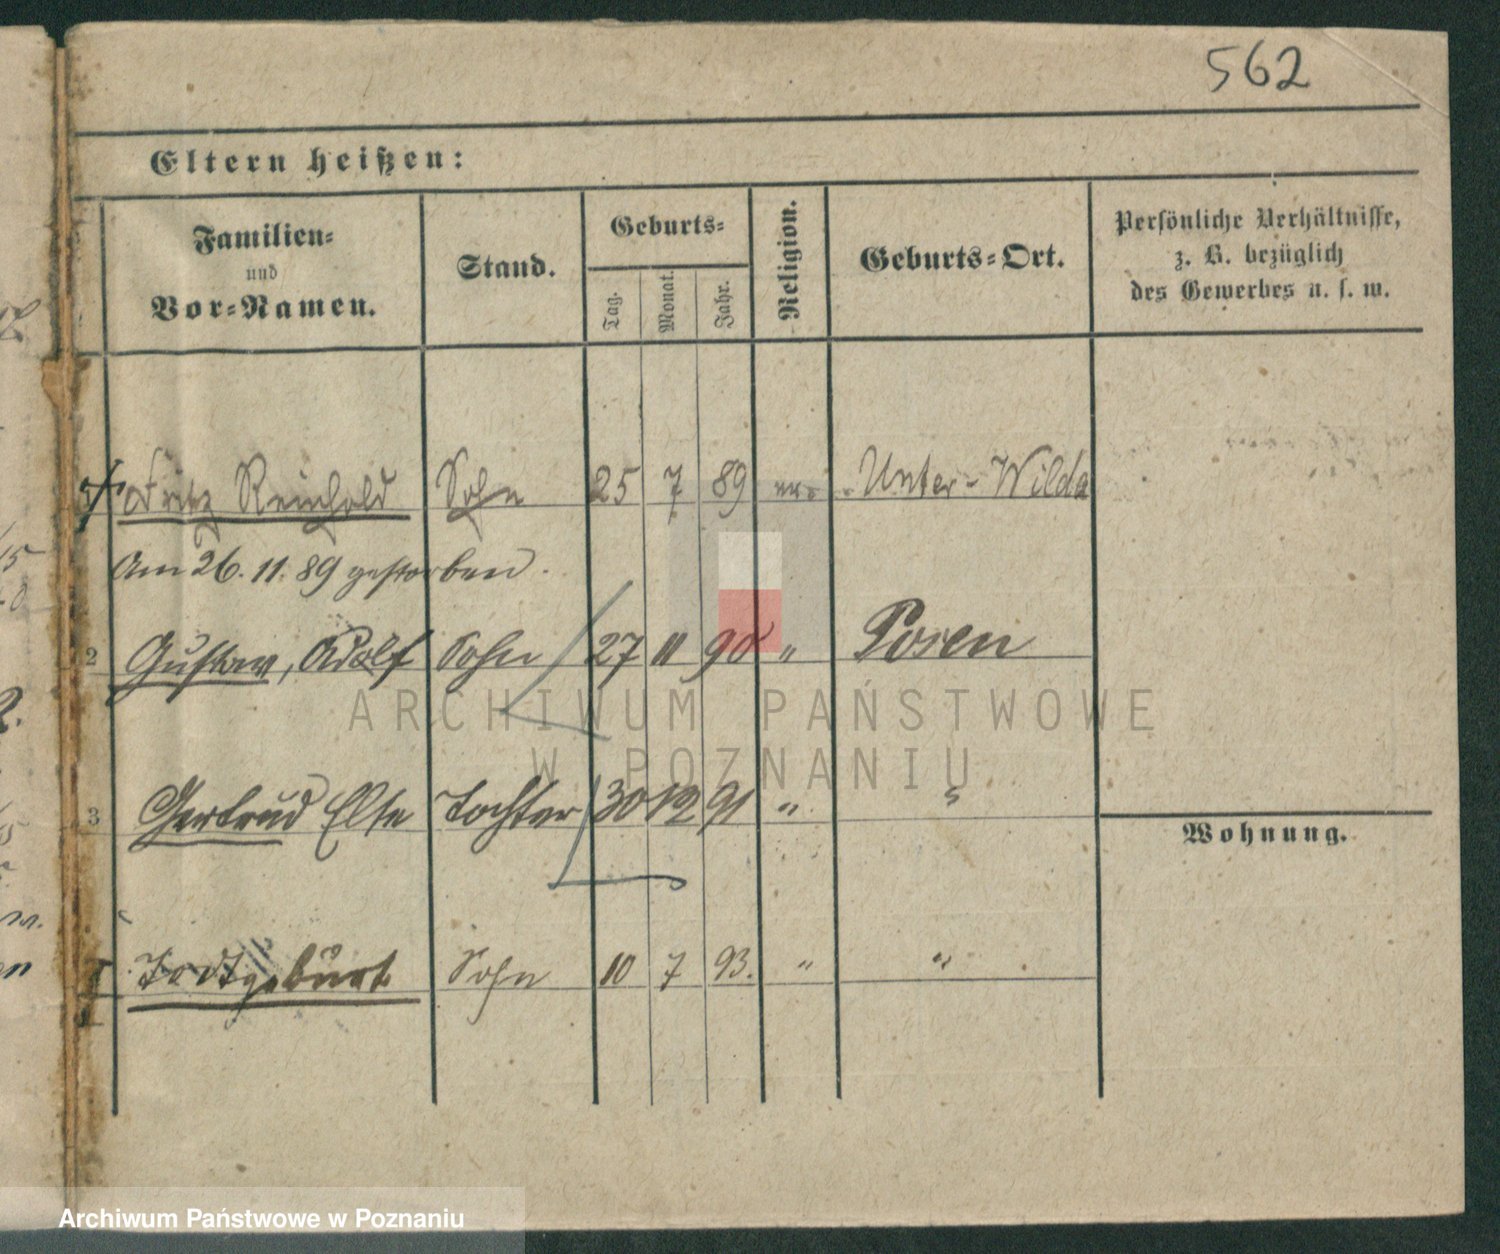 562
Eltern heißen:
Familien-
und
Vor-Namen.
Stand.
Geburts-
Tag.
Monat.
Jahr.
Religion.
Geburts-Ort.
Persönliche Verhältnisse,
z. B. bezüglich
des Gewerbes u. s. w.
Fritz Reinhold Sohn 25 7 89 ev. Unter-Wilda
Am 26. 11. 89 gestorben.
2 Gustav, Adolf Sohn 27 11 90 " Posen
ARCHIWUM PAŃSTWOWE
W POZNANIU
3 Gertrud Else Tochter 30 12 91 " "
Wohnung.
Todtgeburt Sohn 10 7 93. " "
Archiwum Państwowe w Poznaniu